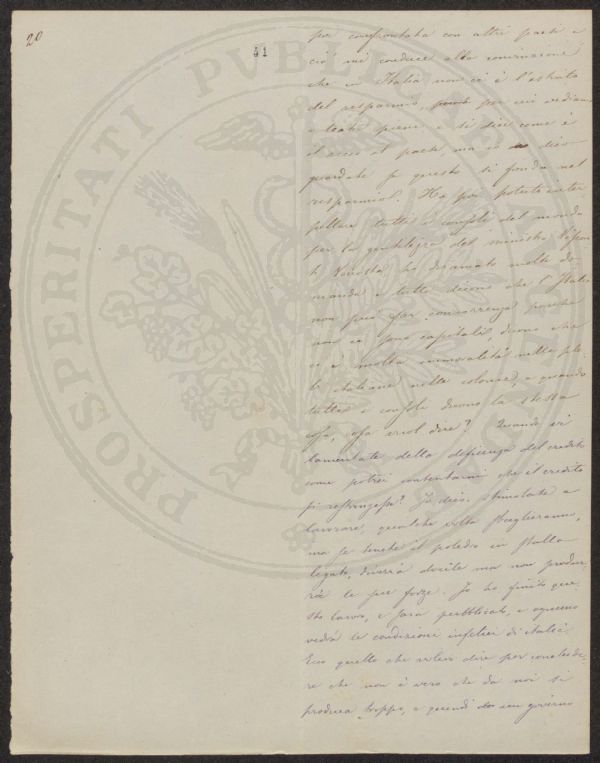 20
41
per confrontata con altri paesi e
ciò mi conduce alla convinzione
che in Italia non ci è l'attività
del risparmio, per cui vediamo
e si dice come è
il paese, ma io dico
guardate se questo si fonda nel
risparmio. Ho poi potuto inter
pellare tutti i consoli del mondo
per la gentilezza del ministro Viscon
ti Venosta ho diramato molte do
mande e tutti dicono che l'Italia
non può far concorrenza perchè
non ci sono capitali, dicono che
ci è molta immoralità nella ple
be italiana nelle colonie, e quando
tutti i consoli dicono la stessa
cosa, cosa vuol dire? Quando vi
lamentate della deficienza del credito
come potrei contentarmi che il credito
si restringesse? Io dico stimolate a
lavorare, qualche volta sbaglieranno,
ma se tenete il poledro in stalla
legato, diverrà docile ma non produr
rà le sue forze. Io ho finito que
sto lavoro, e sarà pubblicato, e ognuno
vedrà le condizioni infelici di Italia.
Ecco quello che volevo dire per conclude
re che non è vero che da noi si
produca troppo, e quindi un governo
PROSPERITATI PUBLICAE